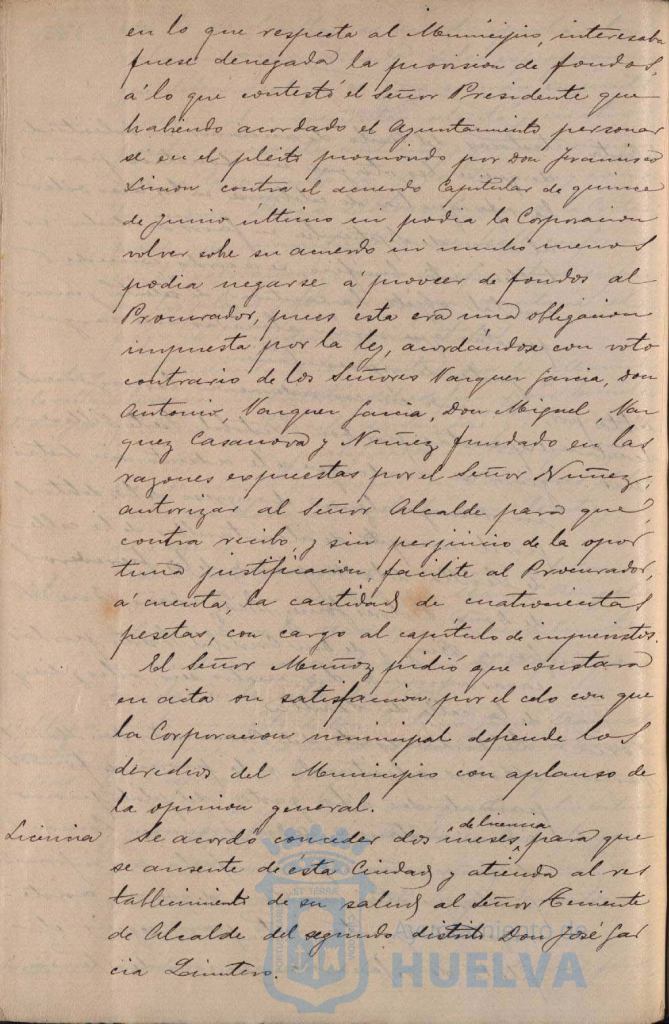 en lo que respecta al Municipio, interesaba
fuese denegada la provision de fondos,
á lo que contestó el Señor Presidente que
habiendo acordado el Ayuntamiento personar
se en el pleito promovido por Don Francisco
Limon contra el acuerdo Capitular de quince
de Junio último ni podia la Corporacion
volver sobe su acuerdo ni mucho menos
podia negarse á proveer de fondos al
Procurador, pues esta era una obligacion
impuesta por la ley, acordándose con voto
contrario de los Señores Vazquez Garcia, Don
Antonio, Vazquez Garcia, Don Miguel, Vaz
quez Casanova y Nuñez, fundado en las
razones expuestas por el Señor Nuñez,
autorizar al Señor Alcalde para que,
contra recibo, y sin perjuicio de la opor
tuna justificacion, facilite al Procurador,
á cuenta, la cantidad de cuatrocientas
pesetas, con cargo al capítulo de imprevistos.
El Señor Muñoz pidió que constara
en acta su satisfaccion por el celo con que
la Corporacion municipal defiende los
derechos del Municipio con aplauso de
la opinion general.
Licencia
Se acordó conceder dos meses, de licencia para que
se ausente de ésta Ciudad y atienda al res
tablecimiento de su salud al Señor Teniente
de Alcalde del segundo distrito Don José Gar
cia
Ayuntamiento de
HUELVA